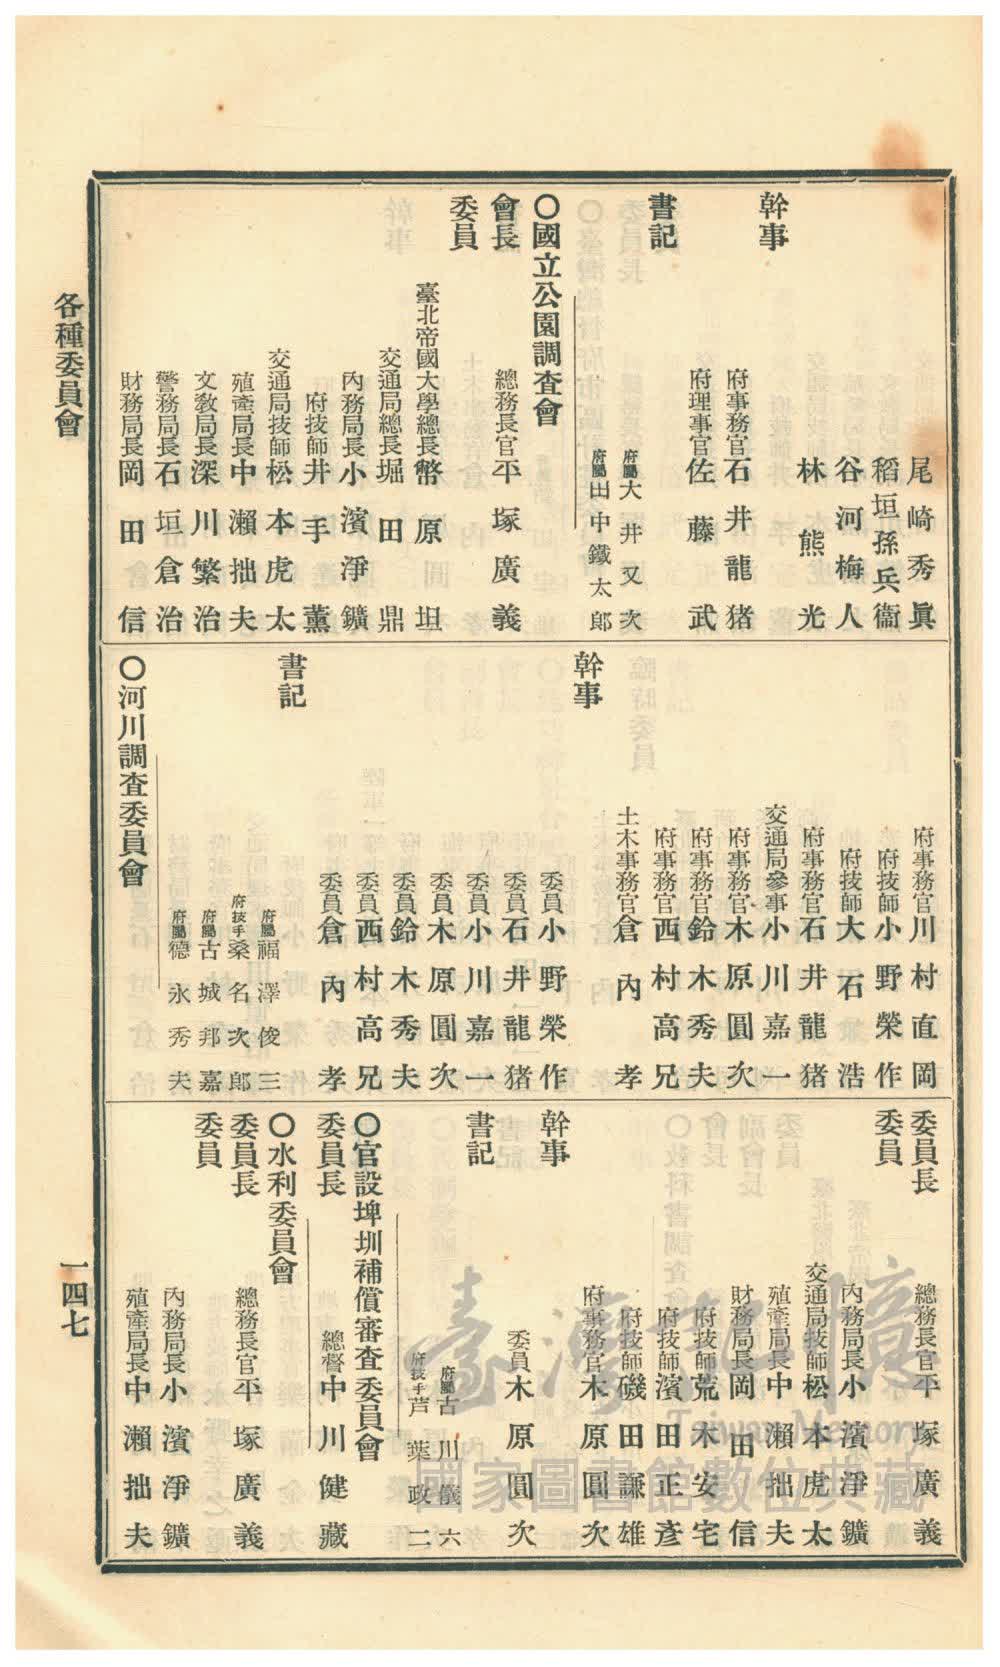 尾崎秀眞
稻垣孫兵衞
谷河梅人
林熊光
幹事 府事務官 石井龍猪
府理事官 佐藤武
書記 府屬 大井又次
府屬 田中鐵太郎
〇國立公園調査會
會長 總務長官 平塚廣義
委員 臺北帝國大學總長 幣原坦
交通局總長 堀田鼎
內務局長 小濱淨鑛
府技師 井手薰
交通局技師 松本虎太
殖產局長 中瀨拙夫
文敎局長 深川繁治
警務局長 石垣倉治
財務局長 岡田信
府事務官 川村直岡
府技師 小野榮作
府技師 大石浩
府事務官 石井龍猪
交通局參事 小川嘉一
府事務官 木原圓次
府事務官 鈴木秀夫
府事務官 西村高兄
土木事務官 倉內孝
幹事 委員 小野榮作
委員 石井龍猪
委員 小川嘉一
委員 木原圓次
委員 鈴木秀夫
委員 西村高兄
委員 倉內孝
書記 府屬 福澤俊三
府技手 桑名次郎
府屬 古城邦嘉
府屬 德永秀夫
〇河川調査委員會
委員長 總務長官 平塚廣義
委員 內務局長 小濱淨鑛
交通局技師 松本虎太
殖產局長 中瀨拙夫
財務局長 岡田信
府技師 荒木安宅
府技師 濱田正彥
府技師 磯田謙雄
府事務官 木原圓次
幹事 委員 木原圓次
書記 府屬 古川儀六
府技手 芦葉政二
〇官設埤圳補償審査委員會
委員長 總督 中川健藏
〇水利委員會
委員長 總務長官 平塚廣義
委員 內務局長 小濱淨鑛
殖產局長 中瀨拙夫
各種委員會
一四七
臺灣記憶
Taiwan Memory
國家圖書館數位典藏